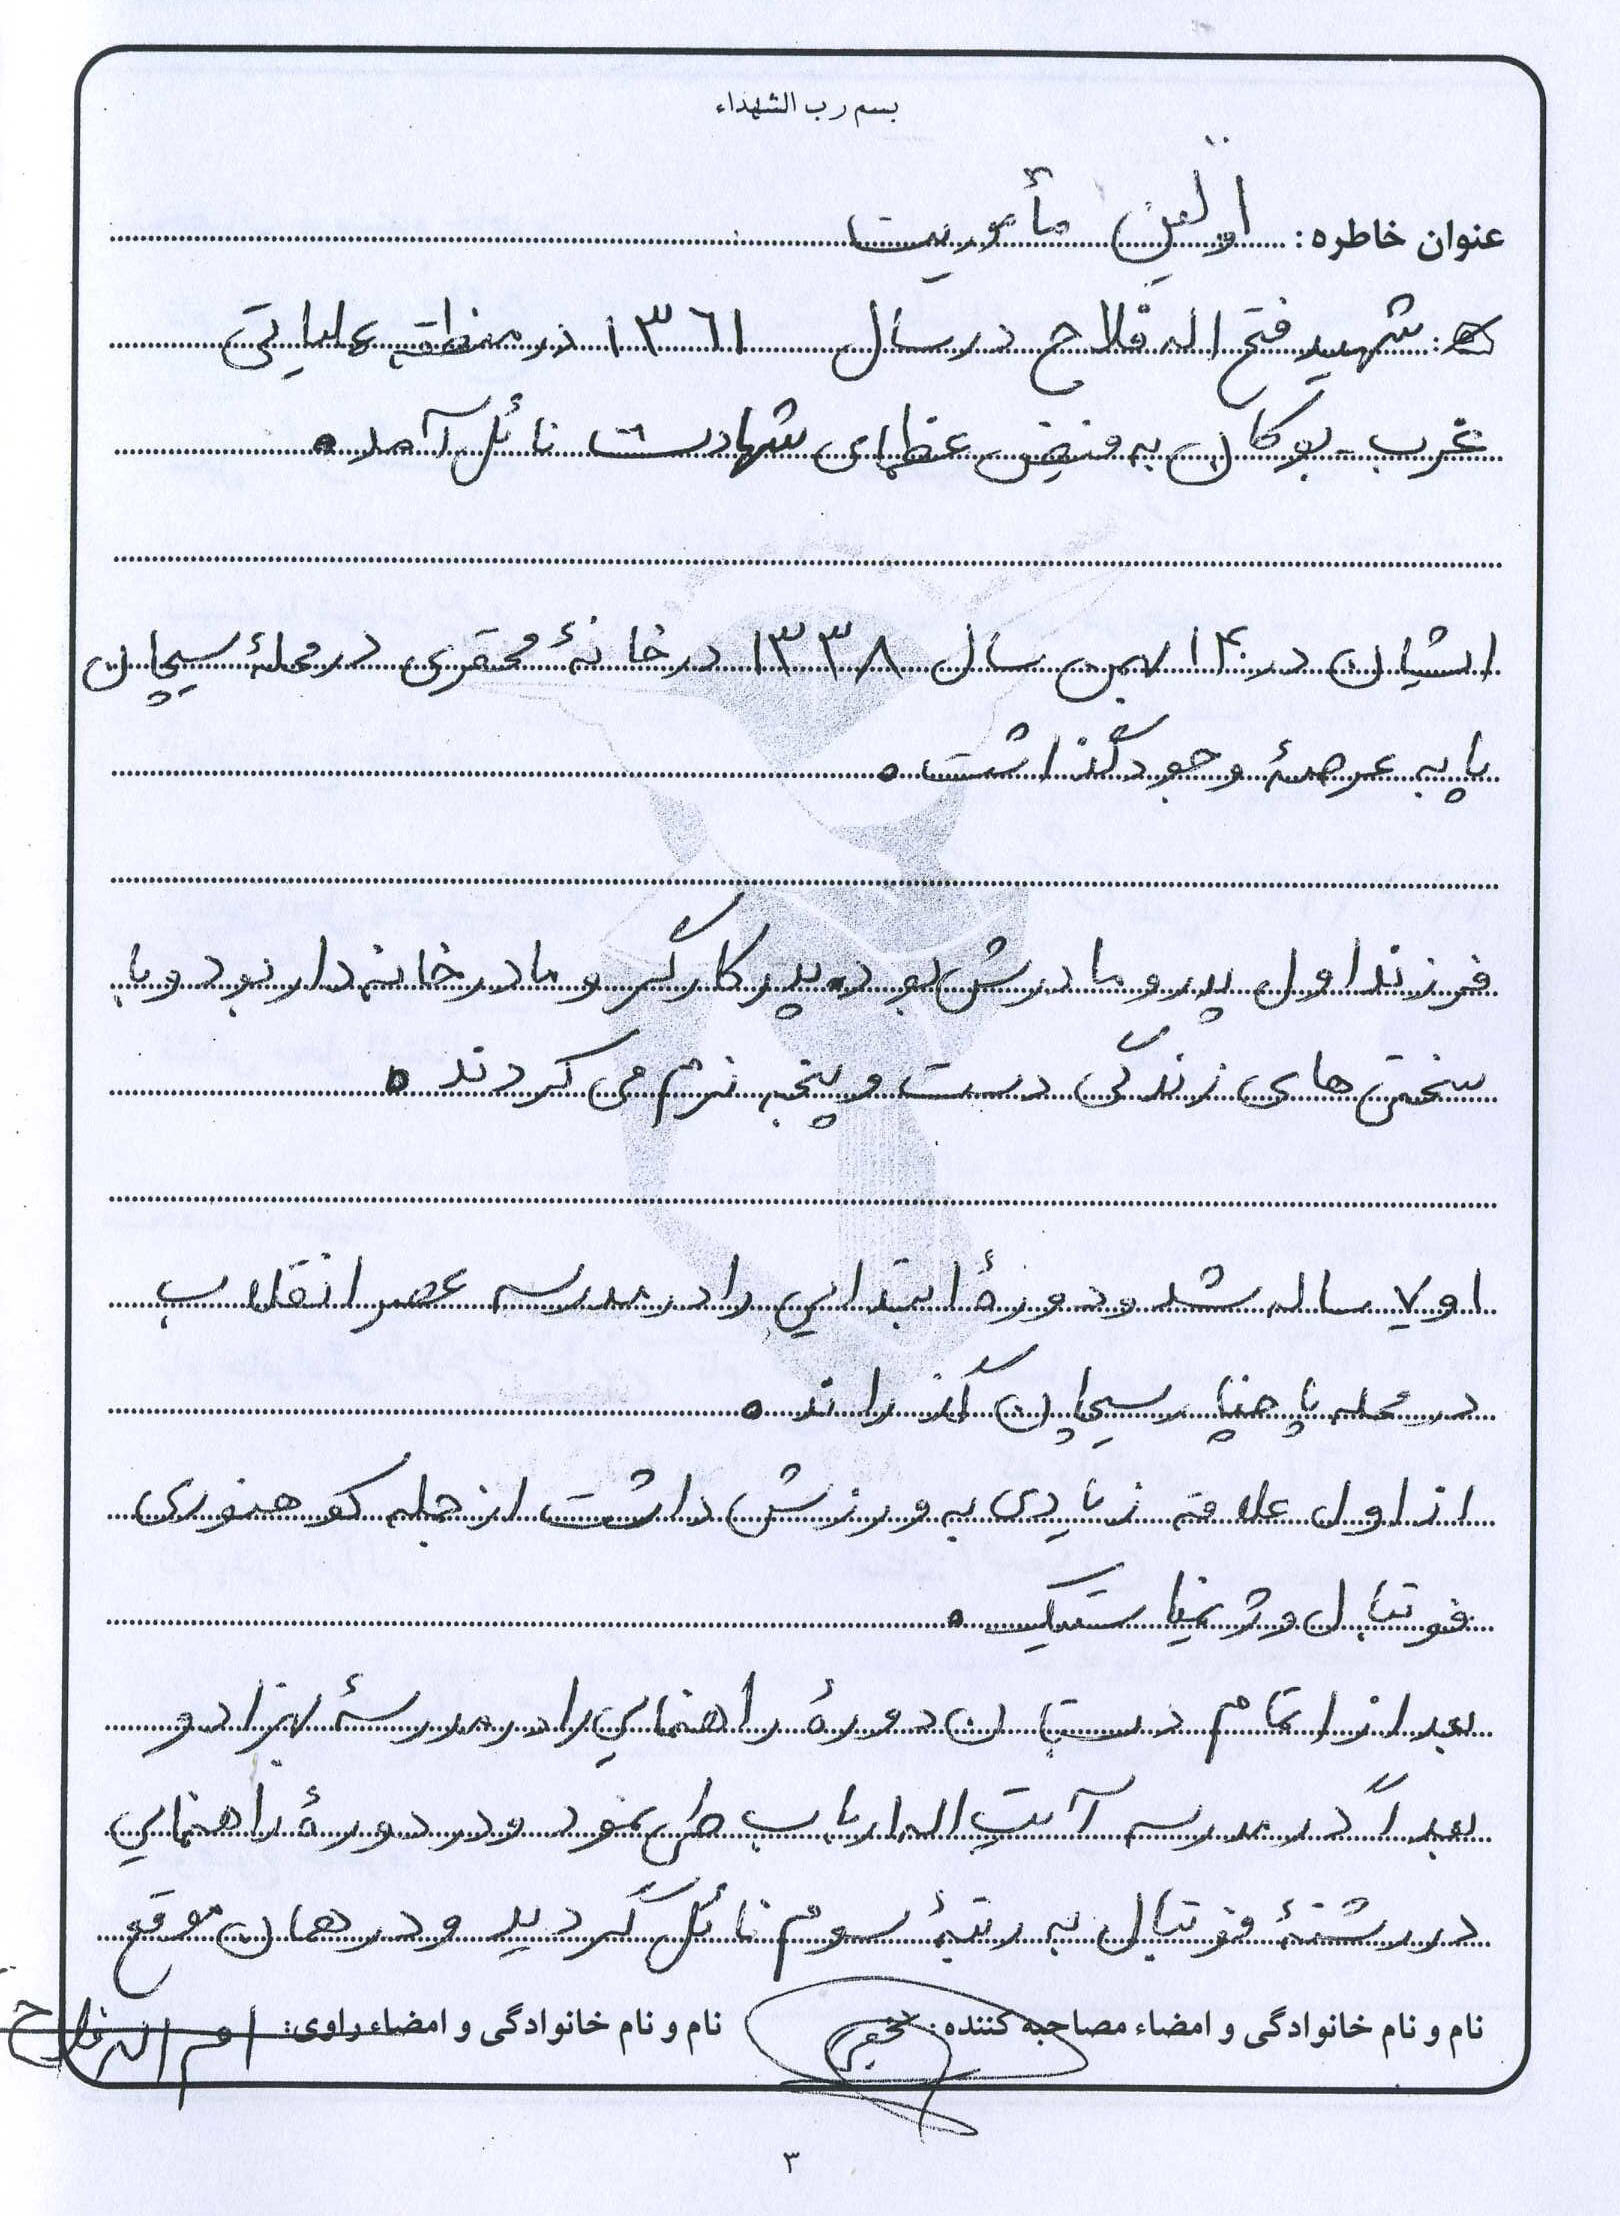 بسم رب الشهداء
عنوان خاطره: اولین مأموریت
شهید فتح اله فلاح در سال ۱۳۶۱ در منطقه عملیاتی
غرب - بوکان به فیض عظمای شهادت نائل آمد.
ایشان در ۱۴ بهمن سال ۱۳۳۸ در خانۀ محقری در محلۀ سیچان
پا به عرصۀ وجود گذاشت.
فرزند اول پدر و مادرش بود. پدر کارگر و مادر خانه دار بود و با
سختی های زندگی دست و پنجه نرم می کردند.
او ۷ ساله شد و دورۀ ابتدایی را در مدرسه عصر انقلاب
در محله پاچنار سیچان گذراند.
از اول علاقه زیادی به ورزش داشت از جمله کوهنوری
فوتبال و ژیمناستیک.
بعد از اتمام دبستان دورۀ راهنمایی را در مدرسۀ بهزاد و
بعداً در مدرسه آیت اله ارباب طی نمود و در دورۀ راهنمایی
در رشتۀ فوتبال به رتبۀ سوم نائل گردید و در همان موقع
نام و نام خانوادگی و امضاء مصاحبه کننده: نام و نام خانوادگی و امضاء راوی: اله فلاح
۳